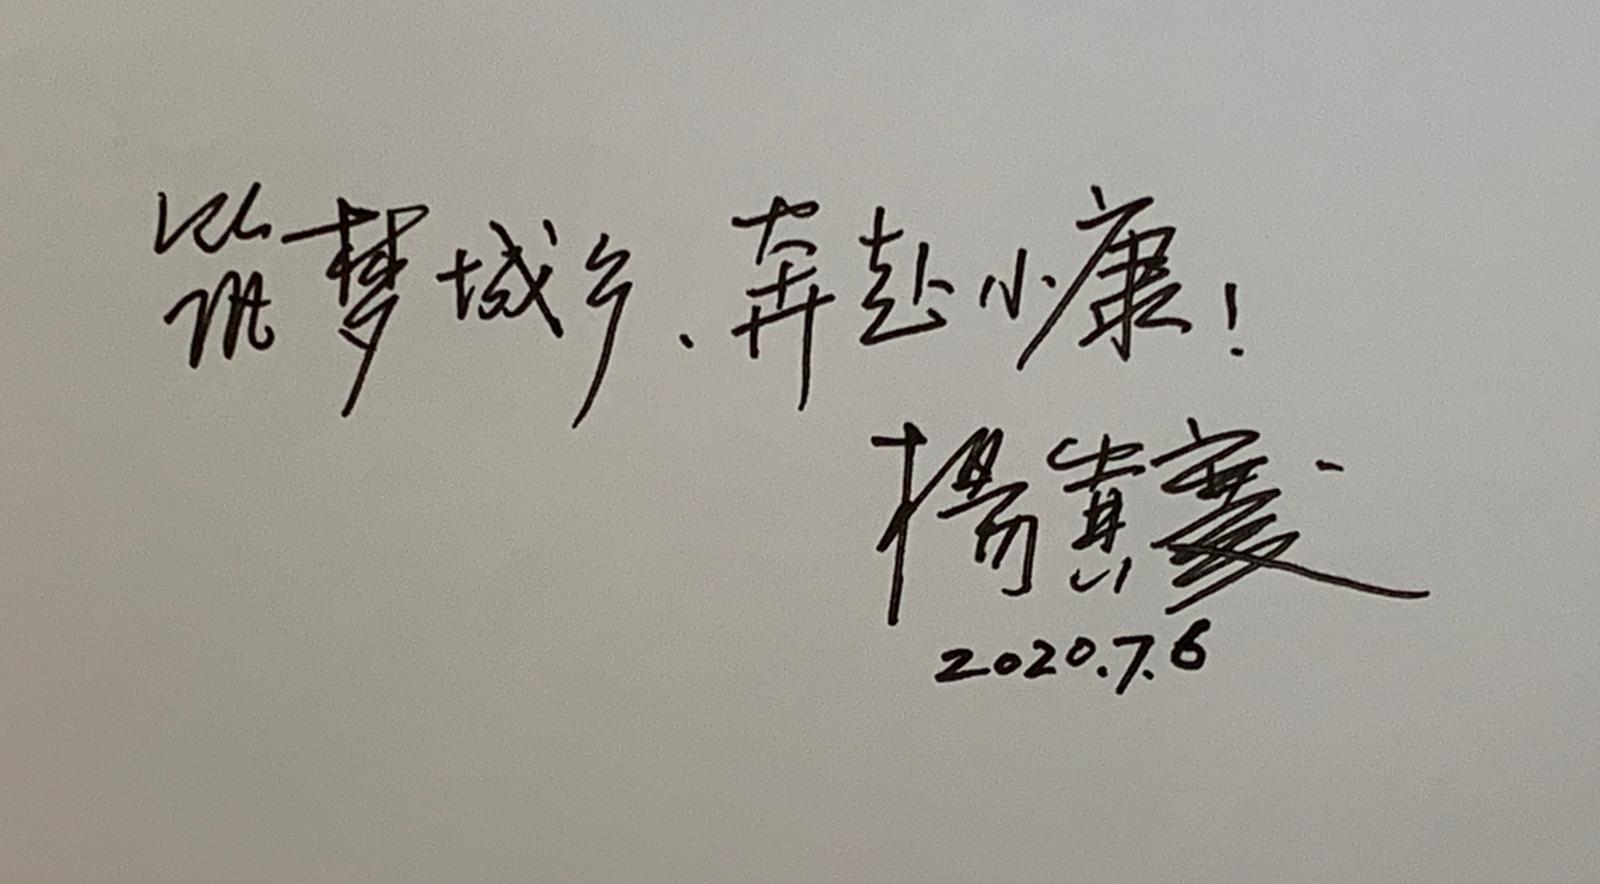 筑梦城乡、奔赴小康!
楊贵庆
2020.7.6